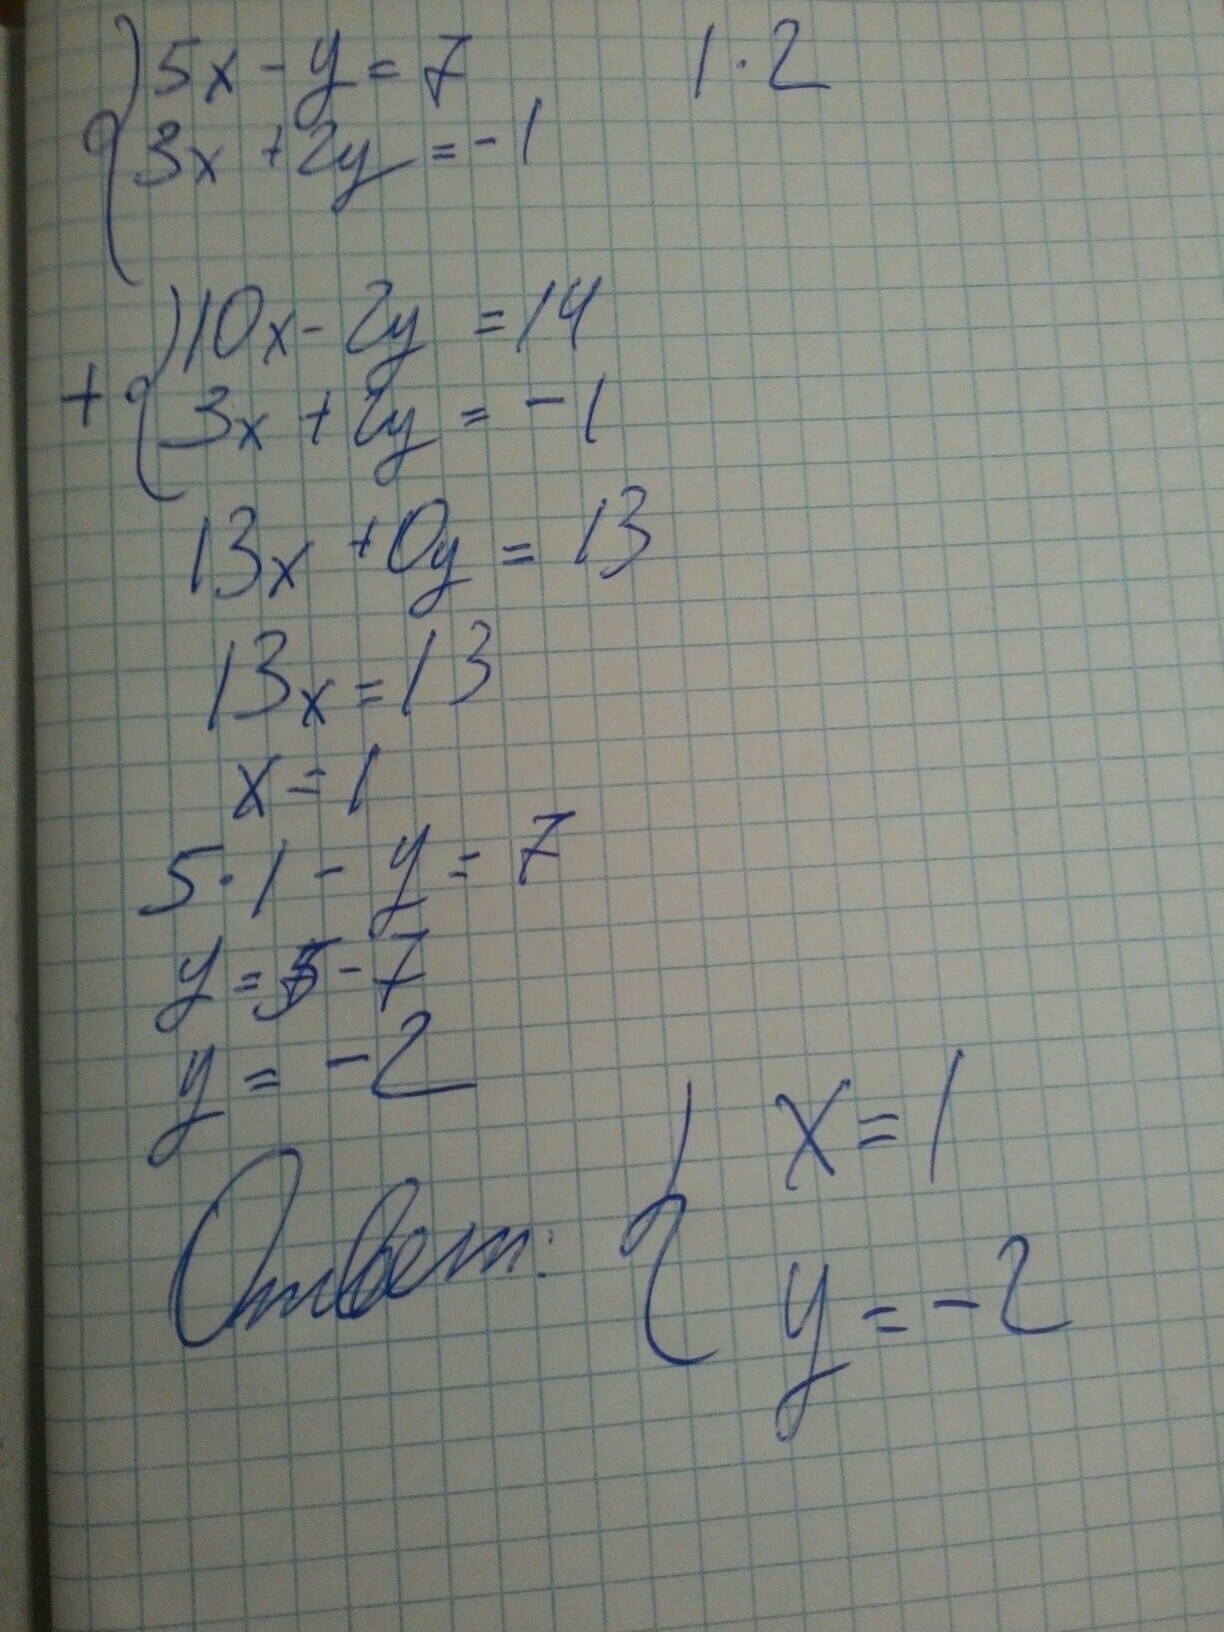 5x - y = 7 | · 2
3x + 2y = -1
10x - 2y = 14
+
3x + 2y = -1
13x + 0y = 13
13x = 13
x = 1
5 · 1 - y = 7
y = 5 - 7
y = -2
Ответ: { x = 1
y = -2